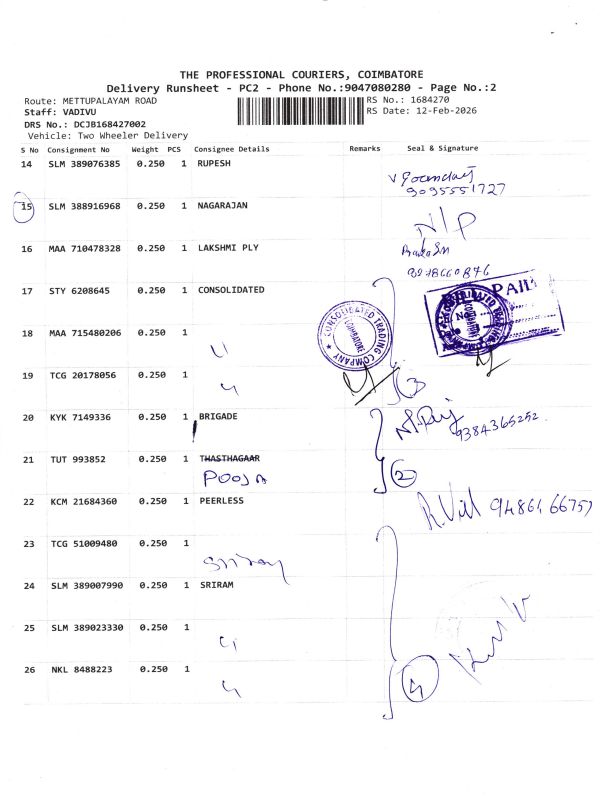 THE PROFESSIONAL COURIERS, COIMBATORE
Delivery Runsheet - PC2 - Phone No.:9047080280 - Page No.:2
Route: METTUPALAYAM ROAD
Staff: VADIVU
DRS No.: DCJB168427002
Vehicle: Two Wheeler Delivery
RS No.: 1684270
RS Date: 12-Feb-2026
S No Consignment No Weight PCS Consignee Details Remarks Seal & Signature
14 SLM 389076385 0.250 1 RUPESH
9095551727
15 SLM 388916968 0.250 1 NAGARAJAN
N/P
16 MAA 710478328 0.250 1 LAKSHMI PLY
17 STY 6208645 0.250 1 CONSOLIDATED
CONSOLIDATED TRADING COMPANY
COIMBATORE
PAID
18 MAA 715480206 0.250 1
19 TCG 20178056 0.250 1
3
20 KYK 7149336 0.250 1 BRIGADE
9384365252
21 TUT 993852 0.250 1 THASTHAGAAR
POOJA
2
22 KCM 21684360 0.250 1 PEERLESS
23 TCG 51009480 0.250 1
Sriram
24 SLM 389007990 0.250 1 SRIRAM
25 SLM 389023330 0.250 1
26 NKL 8488223 0.250 1
4